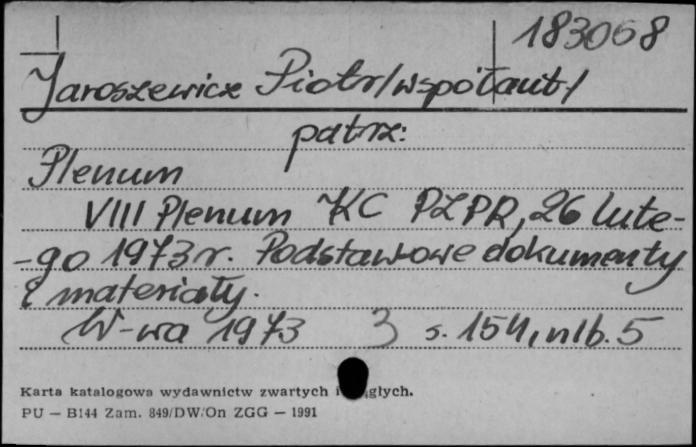 183068
Jaroszewicz Piotr/współaut./
patrz:
Plenum
VIII Plenum KC PZPR, 26 lute-
-go 1973 r. Podstawowe dokumenty
i materiały.
W-wa 1973 3 s. 154, nlb. 5
Karta katalogowa wydawnictw zwartych i ciągłych.
PU — B144 Zam. 849/DW/On ZGG — 1991